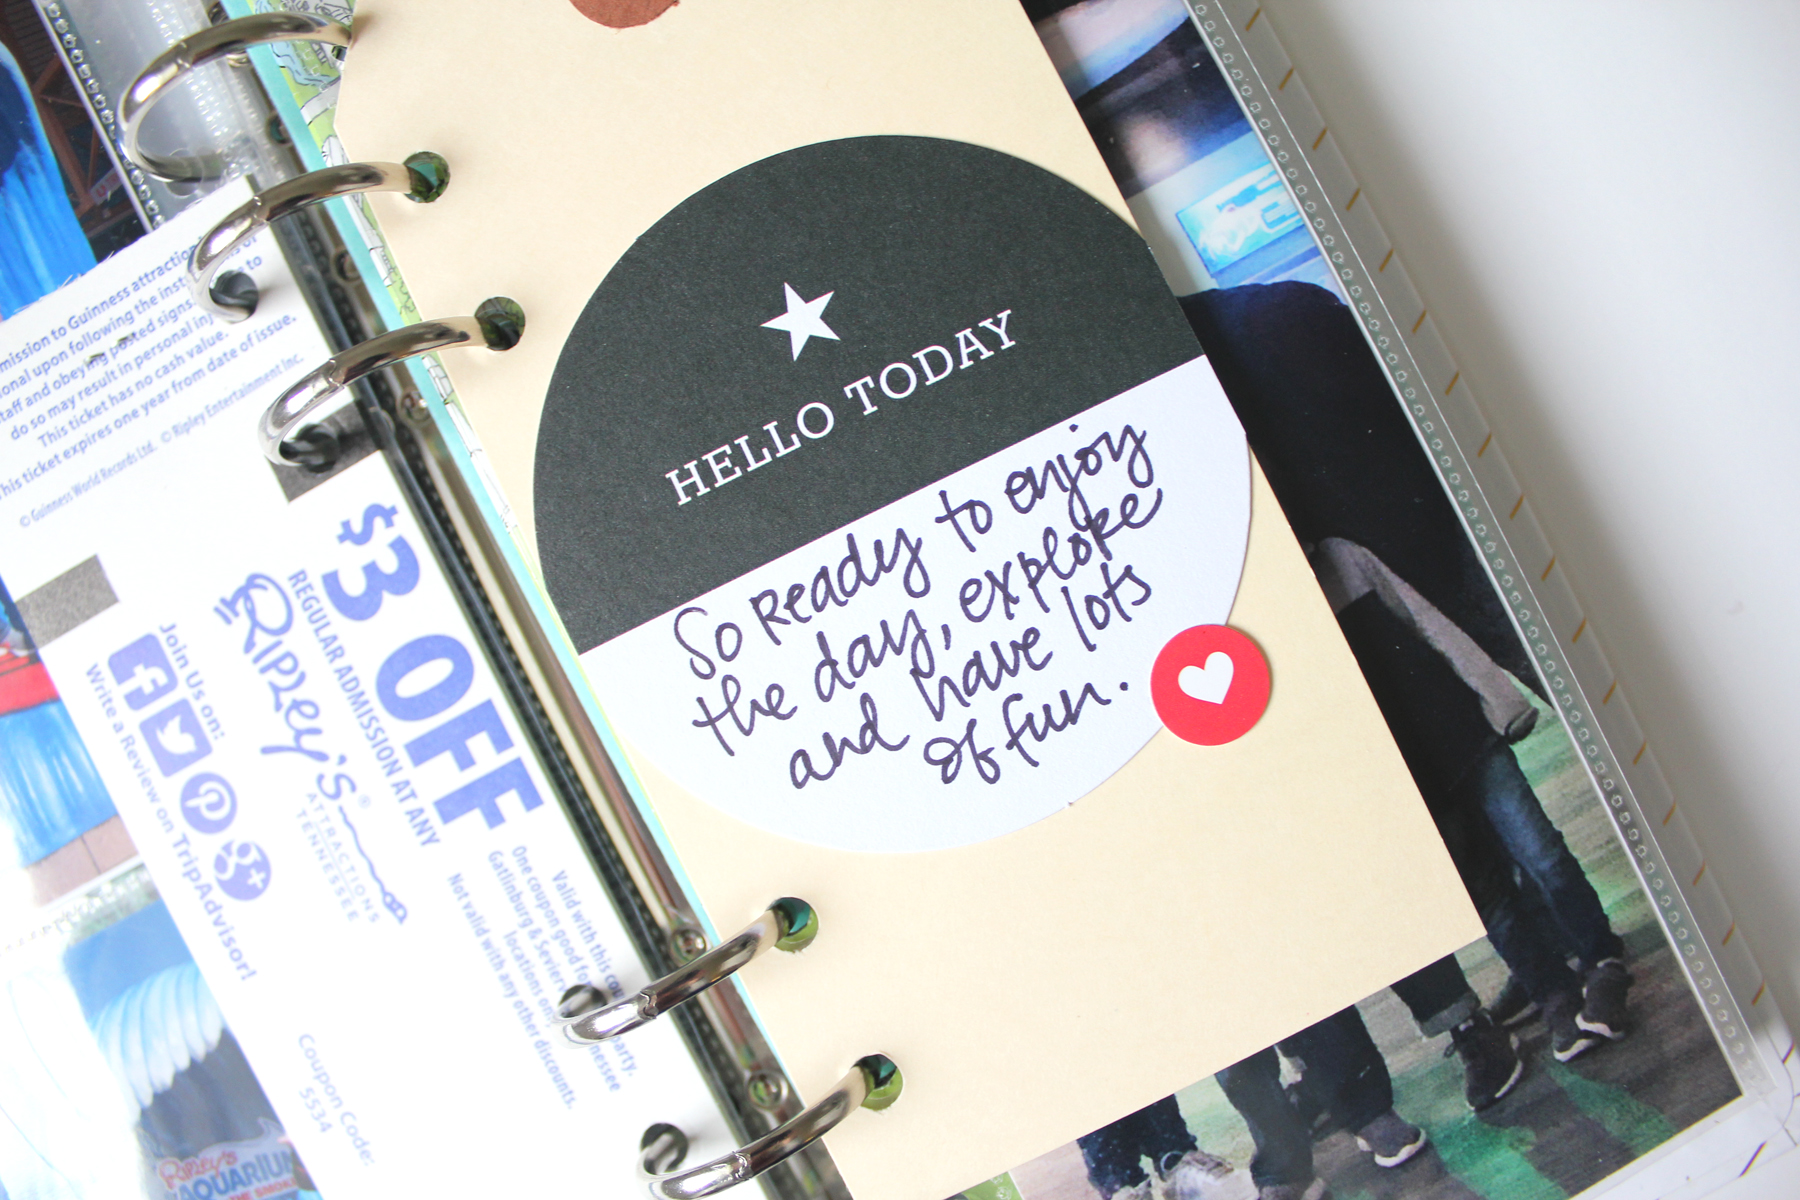 HELLO TODAY
So Ready to enjoy
the day, explore
and have lots
of fun.
mission to Guinness attraction
onal upon following the
staff and obeying posted signs.
do so may result in personal
This ticket has no cash value.
This ticket expires one year from date of issue.
© Guinness World Records Ltd. © Ripley Entertainment Inc.
$3 OFF
REGULAR ADMISSION AT ANY
RIPLEY'S®
ATTRACTIONS
TENNESSEE
Join Us on:
Write a Review on TripAdvisor!
Valid with this
One coupon good for party.
Gatlinburg & Sevier
locations
Not valid with any other discounts.
Coupon Code:
5534
RIPLEY'S
AQUARIUM